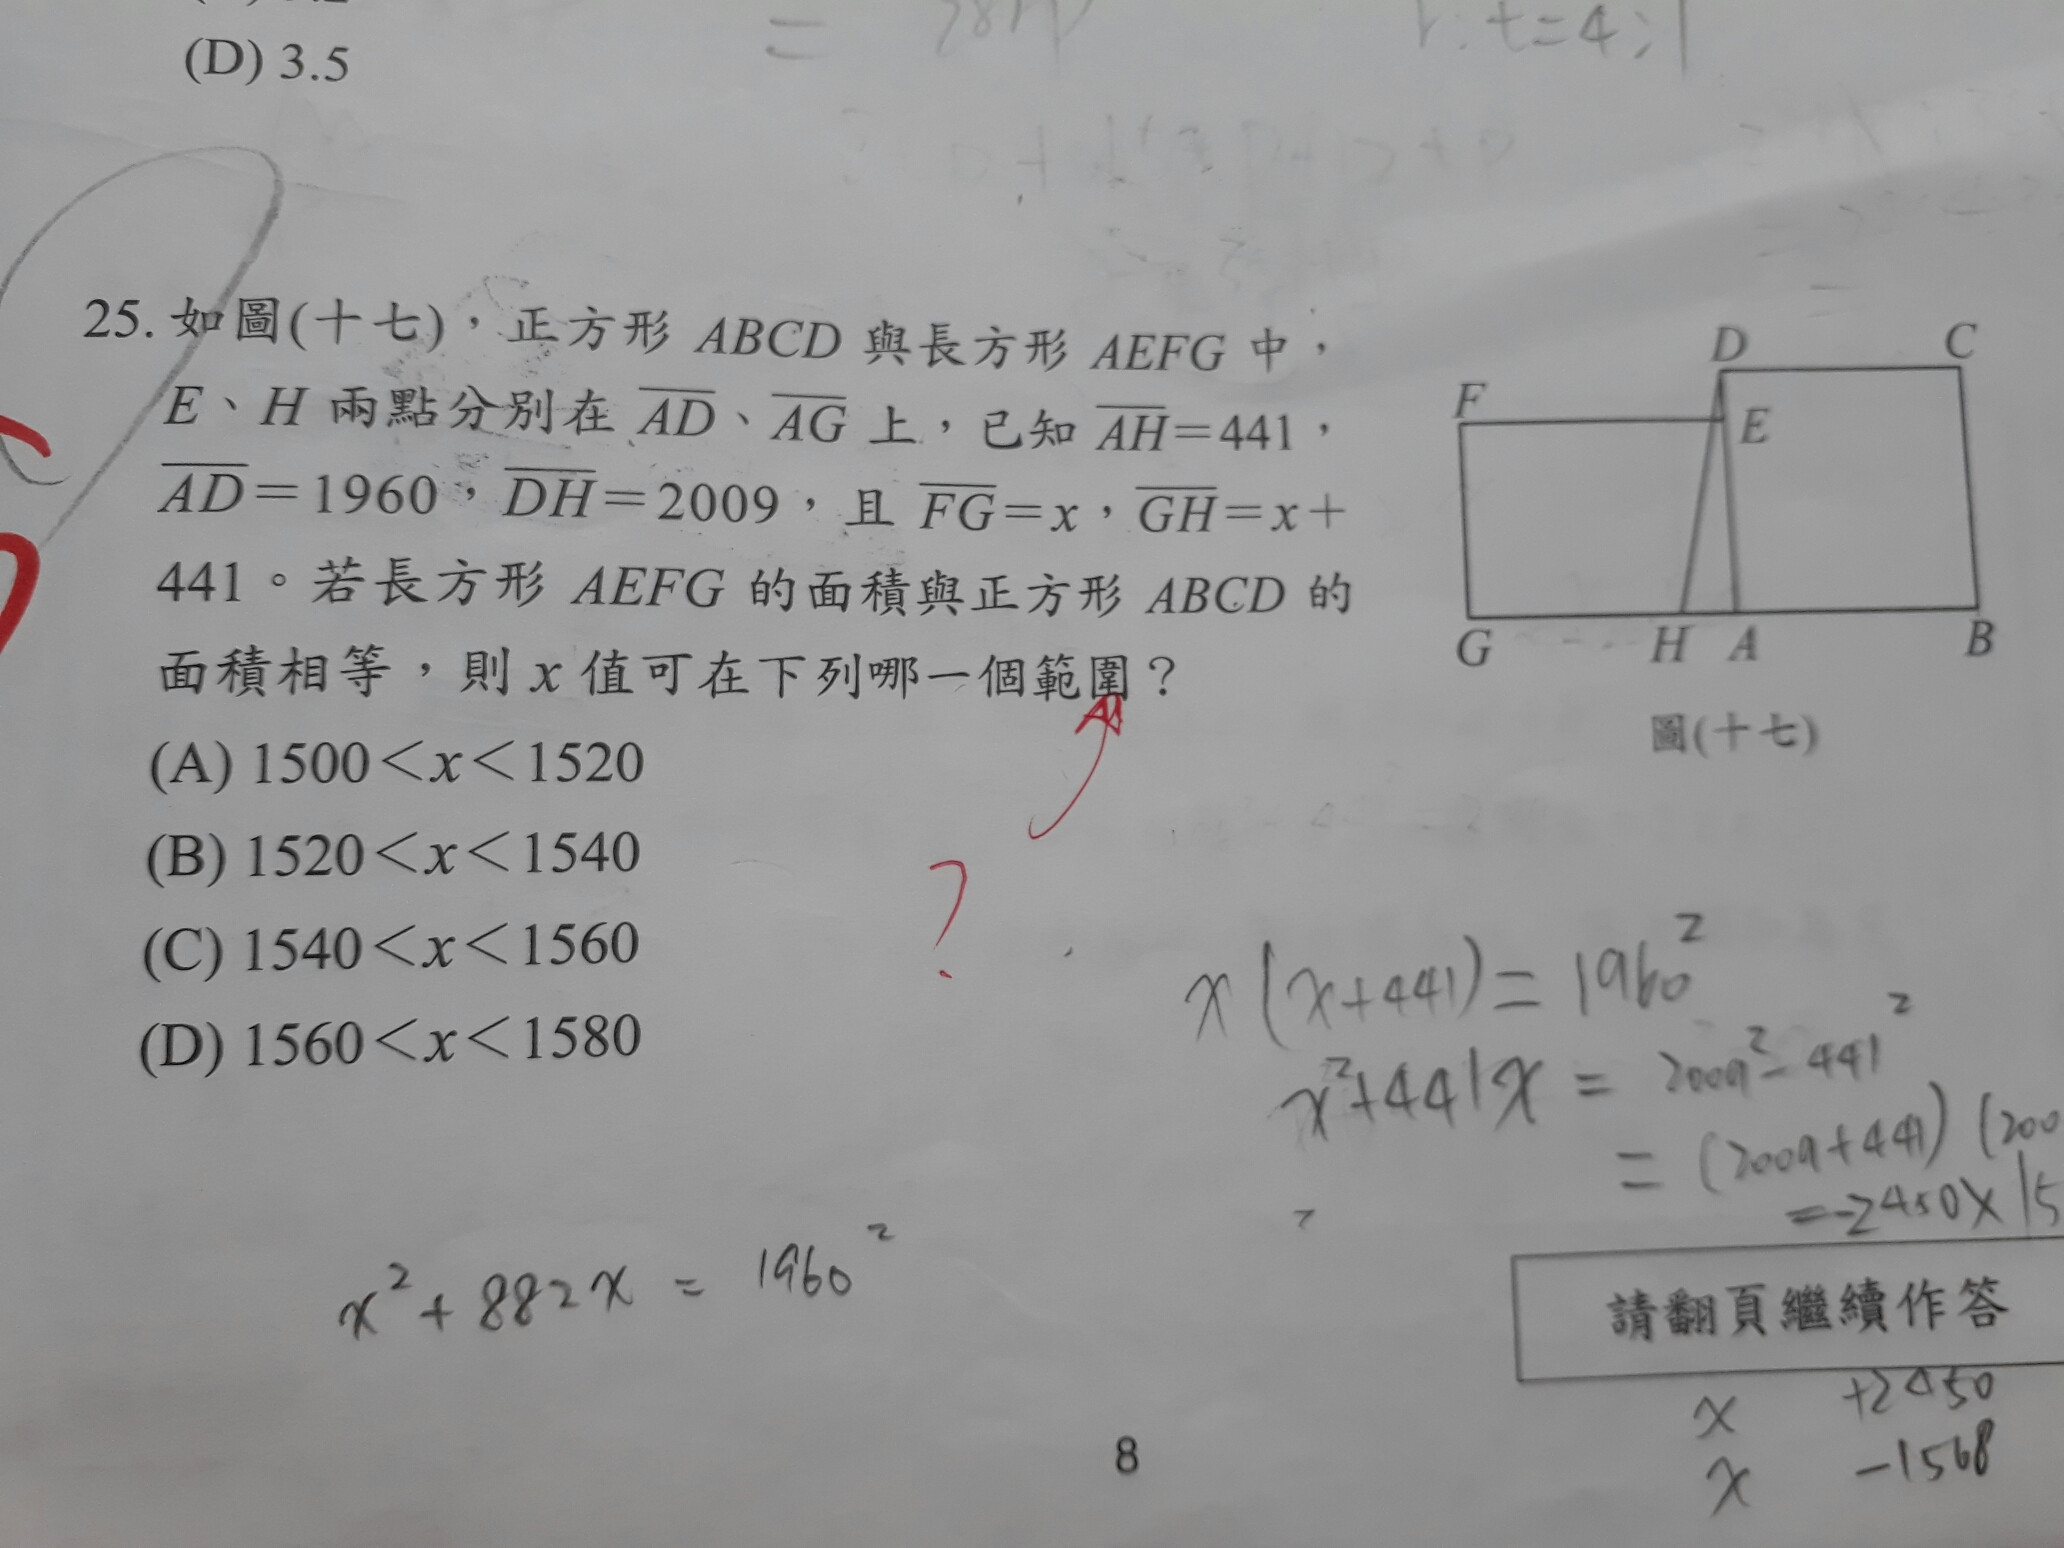 (D) 3.5
r:t=4:1
25. 如圖(十七)，正方形 ABCD 與長方形 AEFG 中，
E、H 兩點分別在 AD、AG 上，已知 AH=441，
AD=1960，DH=2009，且 FG=x，GH=x+
441。若長方形 AEFG 的面積與正方形 ABCD 的
面積相等，則 x 值可在下列哪一個範圍？
(A) 1500<x<1520
(B) 1520<x<1540
(C) 1540<x<1560
(D) 1560<x<1580
?
D C
F E
G H A B
圖(十七)
x(x+441)=1960²
x²+441x = 2009²-441²
= (2009+441)(200
=2450×15
x²+882x = 1960²
請翻頁繼續作答
x +2450
x -1568
8